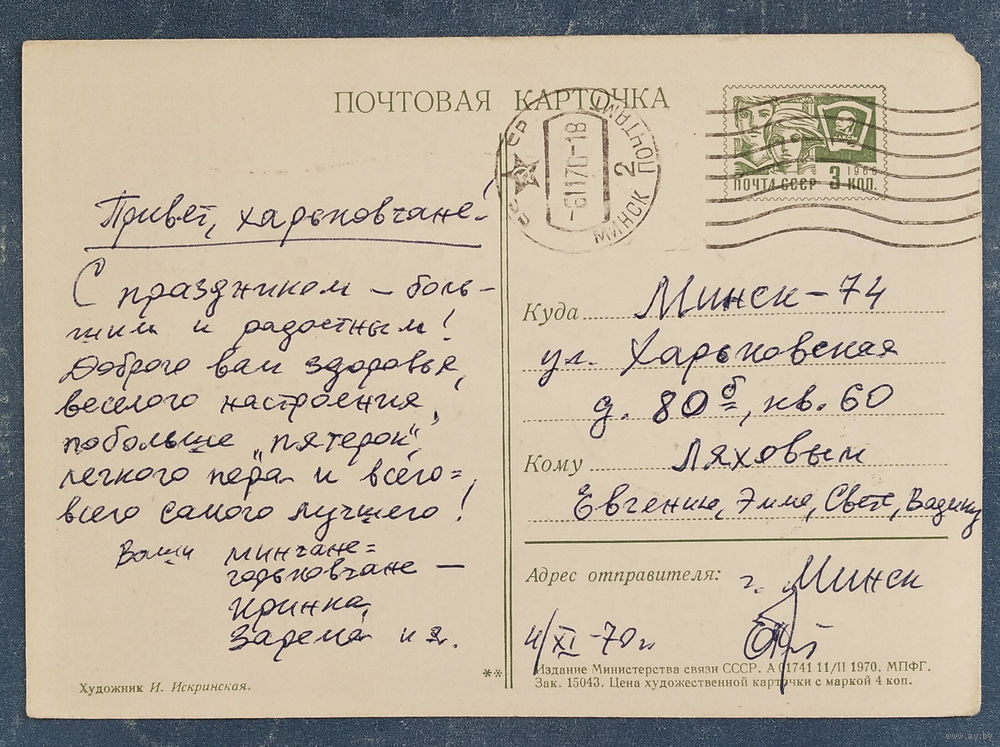 ПОЧТОВАЯ КАРТОЧКА
СССР
МИНСК 2 ПОЧТАМТ
-61170-18
1966
ПОЧТА СССР 3 КОП.
Привет, харьковчане!
С праздником – боль-
шим и радостным!
Доброго вам здоровья,
веселого настроения,
побольше „пятерок",
легкого пера и всего=,
всего самого лучшего!
Ваши минчане=
горьковчане —
Иринка,
Зарема и я.
Художник И. Искринская.
**
Куда Минск-74
ул. Харьковская
д. 80б, кв. 60
Кому Ляховым
Евгению, Эмме, Свете, Вадику
Адрес отправителя: г. Минск
4/XI-70 г.
Издание Министерства связи СССР. А 01741 11/II 1970. МПФГ.
Зак. 15043. Цена художественной карточки с маркой 4 коп.
www.ay.by